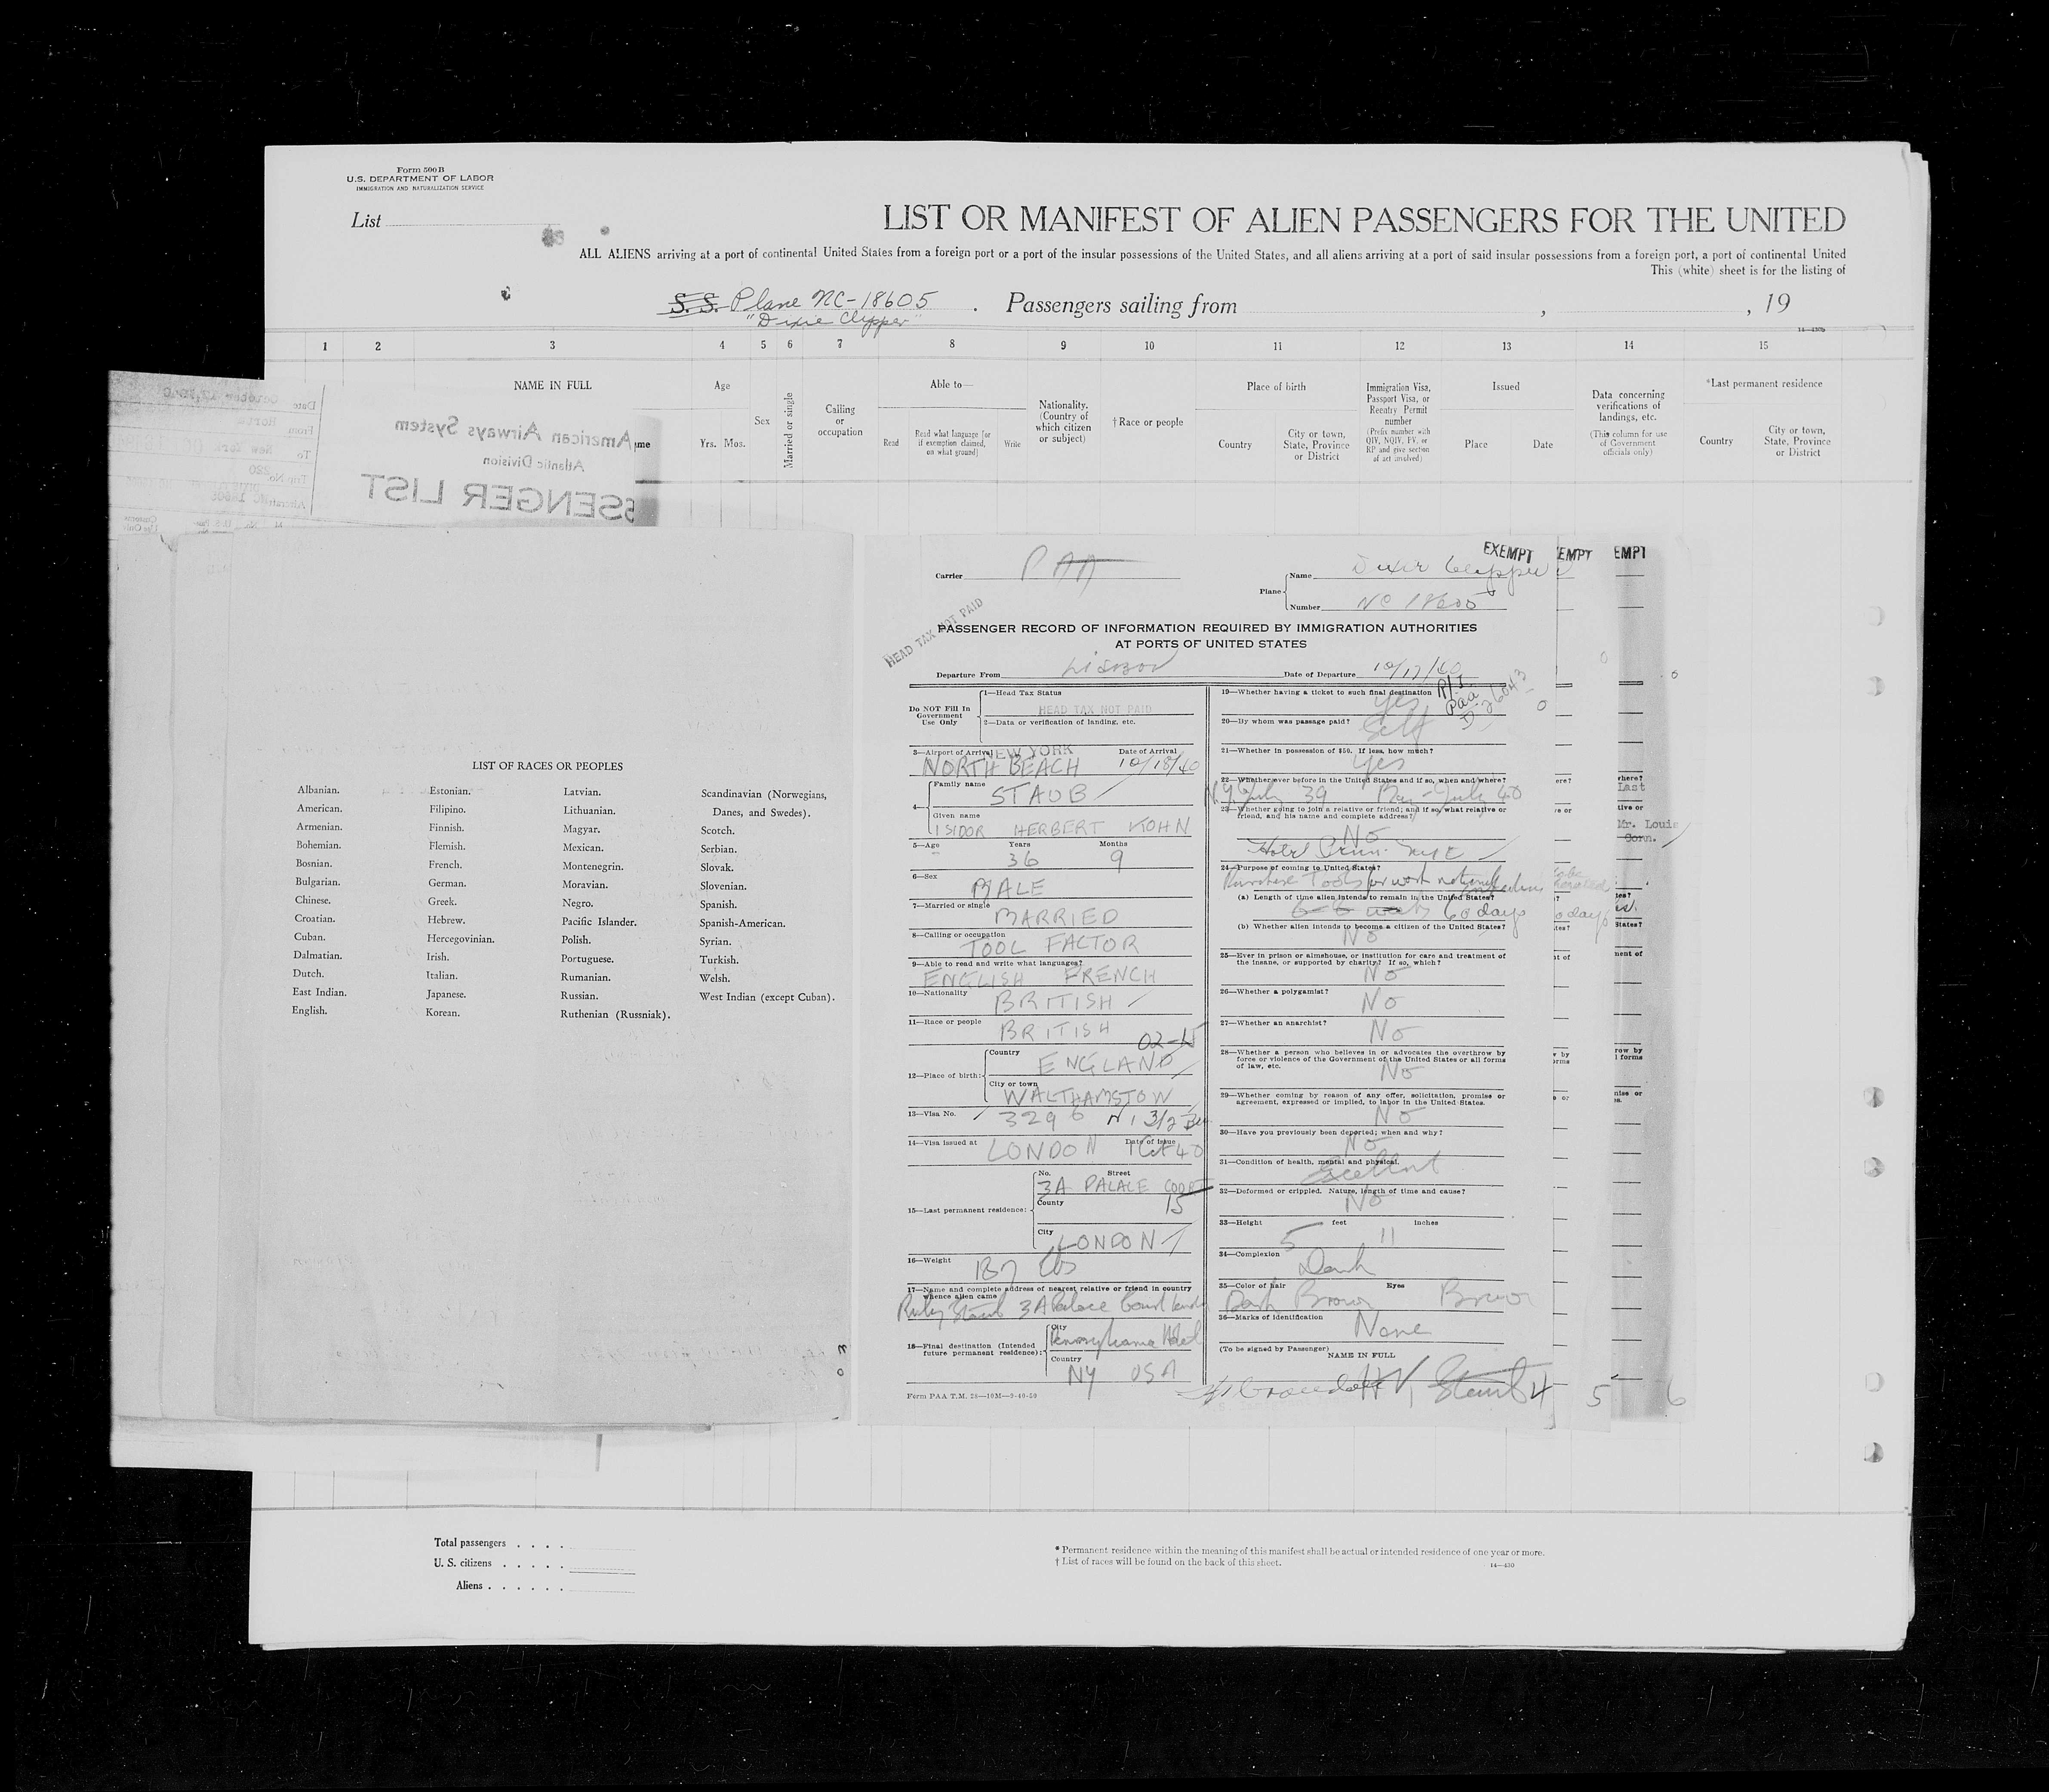 Form 500 B
U.S. DEPARTMENT OF LABOR
IMMIGRATION AND NATURALIZATION SERVICE
List
LIST OR MANIFEST OF ALIEN PASSENGERS FOR THE UNITED
ALL ALIENS arriving at a port of continental United States from a foreign port or a port of the insular possessions of the United States, and all aliens arriving at a port of said insular possessions from a foreign port, a port of continental United
This (white) sheet is for the listing of
S. S. Plane NC-18605 . Passengers sailing from , , 19
"Dixie Clipper"
1 2 3 4 5 6 7 8 9 10 11 12 13 14 15
NAME IN FULL
Age
Yrs. Mos.
Sex
Married or single
Calling or occupation
Able to—
Read
Read what language [or if exemption claimed, on what ground]
Write
Nationality. (Country of which citizen or subject)
†Race or people
Place of birth
Country
City or town, State, Province or District
Immigration Visa, Passport Visa, or Reentry Permit number
(Prefix number with QIV, NQIV, PV, or RP and give section of act involved)
Issued
Place
Date
Data concerning verifications of landings, etc.
(This column for use of Government officials only)
*Last permanent residence
Country
City or town, State, Province or District
American Airways System
Atlantic Division
SSENGER LIST
Date October
From Horta
To New York
Trip No. 220
Aircraft NC 18605
LIST OF RACES OR PEOPLES
Albanian.
American.
Armenian.
Bohemian.
Bosnian.
Bulgarian.
Chinese.
Croatian.
Cuban.
Dalmatian.
Dutch.
East Indian.
English.
Estonian.
Filipino.
Finnish.
Flemish.
French.
German.
Greek.
Hebrew.
Hercegovinian.
Irish.
Italian.
Japanese.
Korean.
Latvian.
Lithuanian.
Magyar.
Mexican.
Montenegrin.
Moravian.
Negro.
Pacific Islander.
Polish.
Portuguese.
Rumanian.
Russian.
Ruthenian (Russniak).
Scandinavian (Norwegians,
Danes, and Swedes).
Scotch.
Serbian.
Slovak.
Slovenian.
Spanish.
Spanish-American.
Syrian.
Turkish.
Welsh.
West Indian (except Cuban).
EXEMPT EMPT EMPT
Carrier PAA
Plane Name Dixie Clipper
Number NC 18605
HEAD TAX NOT PAID
PASSENGER RECORD OF INFORMATION REQUIRED BY IMMIGRATION AUTHORITIES
AT PORTS OF UNITED STATES
Departure From Lisbon Date of Departure 10/17/40
Do NOT Fill In Government Use Only
1—Head Tax Status
HEAD TAX NOT PAID
2—Data or verification of landing, etc.
3—Airport of Arrival NEW YORK Date of Arrival
NORTH BEACH 10/18/40
4— Family name
STAUB
Given name
ISIDOR HERBERT KOHN
5—Age Years Months
36 9
6—Sex
MALE
7—Married or single
MARRIED
8—Calling or occupation
TOOL FACTOR
9—Able to read and write what languages?
ENGLISH FRENCH
10—Nationality
BRITISH
11—Race or people
BRITISH
12—Place of birth: Country
ENGLAND
City or town
WALTHAMSTOW
13—Visa No.
3296
14—Visa issued at Date of Issue
LONDON 1 Oct 40
15—Last permanent residence: No. Street
3A PALACE COURT
County
15
City
LONDON
16—Weight
187 lbs
17—Name and complete address of nearest relative or friend in country whence alien came
Ruby Staub 3A Palace Court London
18—Final destination (Intended future permanent residence): City
Pennsylvania Hotel
Country
NY USA
Form PAA T.M. 28—10M—9-40-50
19—Whether having a ticket to such final destination
Yes
20—By whom was passage paid?
Self
21—Whether in possession of $50. If less, how much?
Yes
22—Whether ever before in the United States and if so, when and where?
N.Y. July 39 May-July 40
23—Whether going to join a relative or friend; and if so, what relative or friend, and his name and complete address?
No
24—Purpose of coming to United States?
Purchase Tools for work
(a) Length of time alien intends to remain in the United States?
60 days
(b) Whether alien intends to become a citizen of the United States?
No
25—Ever in prison or almshouse, or institution for care and treatment of the insane, or supported by charity? If so, which?
No
26—Whether a polygamist?
No
27—Whether an anarchist?
No
28—Whether a person who believes in or advocates the overthrow by force or violence of the Government of the United States or all forms of law, etc.
No
29—Whether coming by reason of any offer, solicitation, promise or agreement, expressed or implied, to labor in the United States.
No
30—Have you previously been deported; when and why?
No
31—Condition of health, mental and physical.
Excellent
32—Deformed or crippled. Nature, length of time and cause?
No
33—Height feet inches
5 11
34—Complexion
Dark
35—Color of hair Eyes
Dark Brown Brown
36—Marks of identification
None
(To be signed by Passenger)
NAME IN FULL
Staub
4 5 6
Mr. Louis
Conn.
Total passengers
U. S. citizens
Aliens
* Permanent residence within the meaning of this manifest shall be actual or intended residence of one year or more.
† List of races will be found on the back of this sheet.
14—430